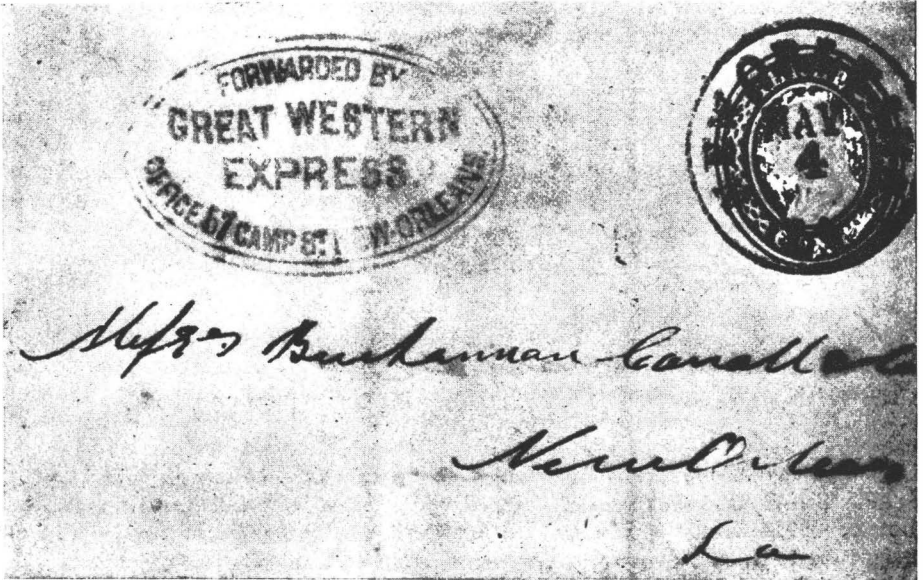 FORWARDED BY
GREAT WESTERN
EXPRESS
OFFICE 67 CAMP ST. NEW-ORLEANS
MAY
4
Messrs Buchannan Carroll &
New Orleans
La